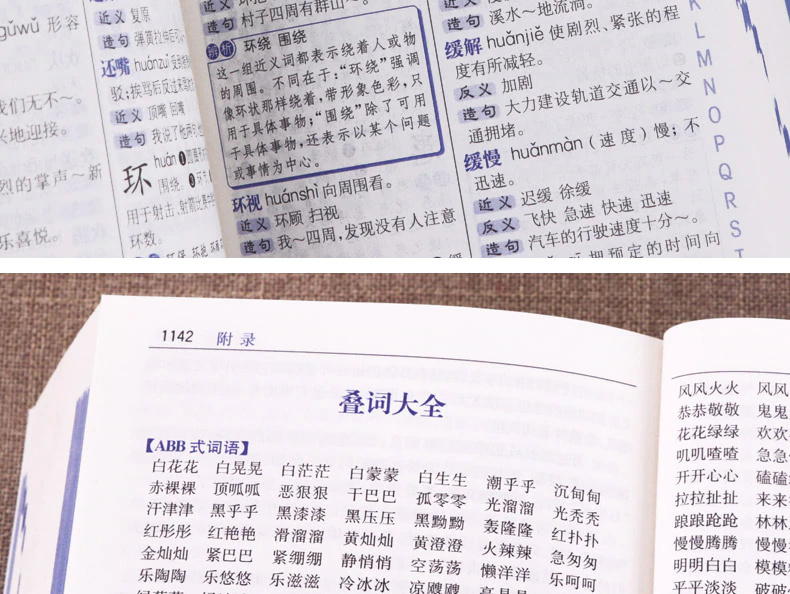 ǔwǔ 形容
我们无不～。
地迎接。
烈的掌声～新
乐喜悦。
近义 复原
造句
还嘴 huánzuǐ
驳；挨骂后反过来
近义 顶嘴 回嘴
造句
环 huán ❶
围绕。❷
用于射击、射箭
环数。
近义
造句 村子四周有群山～。
辨析 环绕 围绕
这一组近义词都表示绕着人或物
的周围。不同在于，“环绕”强调
像环状那样绕着，带形象色彩，只
用于具体事物；“围绕”除了可用
于具体事物，还表示以某个问题
或事情为中心。
环视 huánshì 向周围看。
近义 环顾 扫视
造句 我～四周，发现没有人注意
造句 溪水～地流淌。
缓解 huǎnjiě 使剧烈、紧张的程
度有所减轻。
反义 加剧
造句 大力建设轨道交通以～交
通拥堵。
缓慢 huǎnmàn（速度）慢；不
迅速。
近义 迟缓 徐缓
反义 飞快 急速 快速 迅速
造句 汽车的行驶速度十分～。
把预定的时间向
K
L
M
N
O
P
Q
R
S
T
1142 附录
叠词大全
【ABB 式词语】
白花花 白晃晃 白茫茫 白蒙蒙 白生生 潮乎乎 沉甸甸
赤裸裸 顶呱呱 恶狠狠 干巴巴 孤零零 光溜溜 光秃秃
汗津津 黑乎乎 黑漆漆 黑压压 黑黝黝 轰隆隆 红扑扑
红彤彤 红艳艳 滑溜溜 黄灿灿 黄澄澄 火辣辣 急匆匆
金灿灿 紧巴巴 紧绷绷 静悄悄 空荡荡 懒洋洋 乐呵呵
乐陶陶 乐悠悠 乐滋滋 冷冰冰 凉飕飕
风风火火 风风
恭恭敬敬 鬼鬼
花花绿绿 欢欢
叽叽喳喳 急急
开开心心 磕磕
拉拉扯扯 来来
踉踉跄跄 林林
慢慢腾腾 慢慢
明明白白 模模
平平淡淡 破破